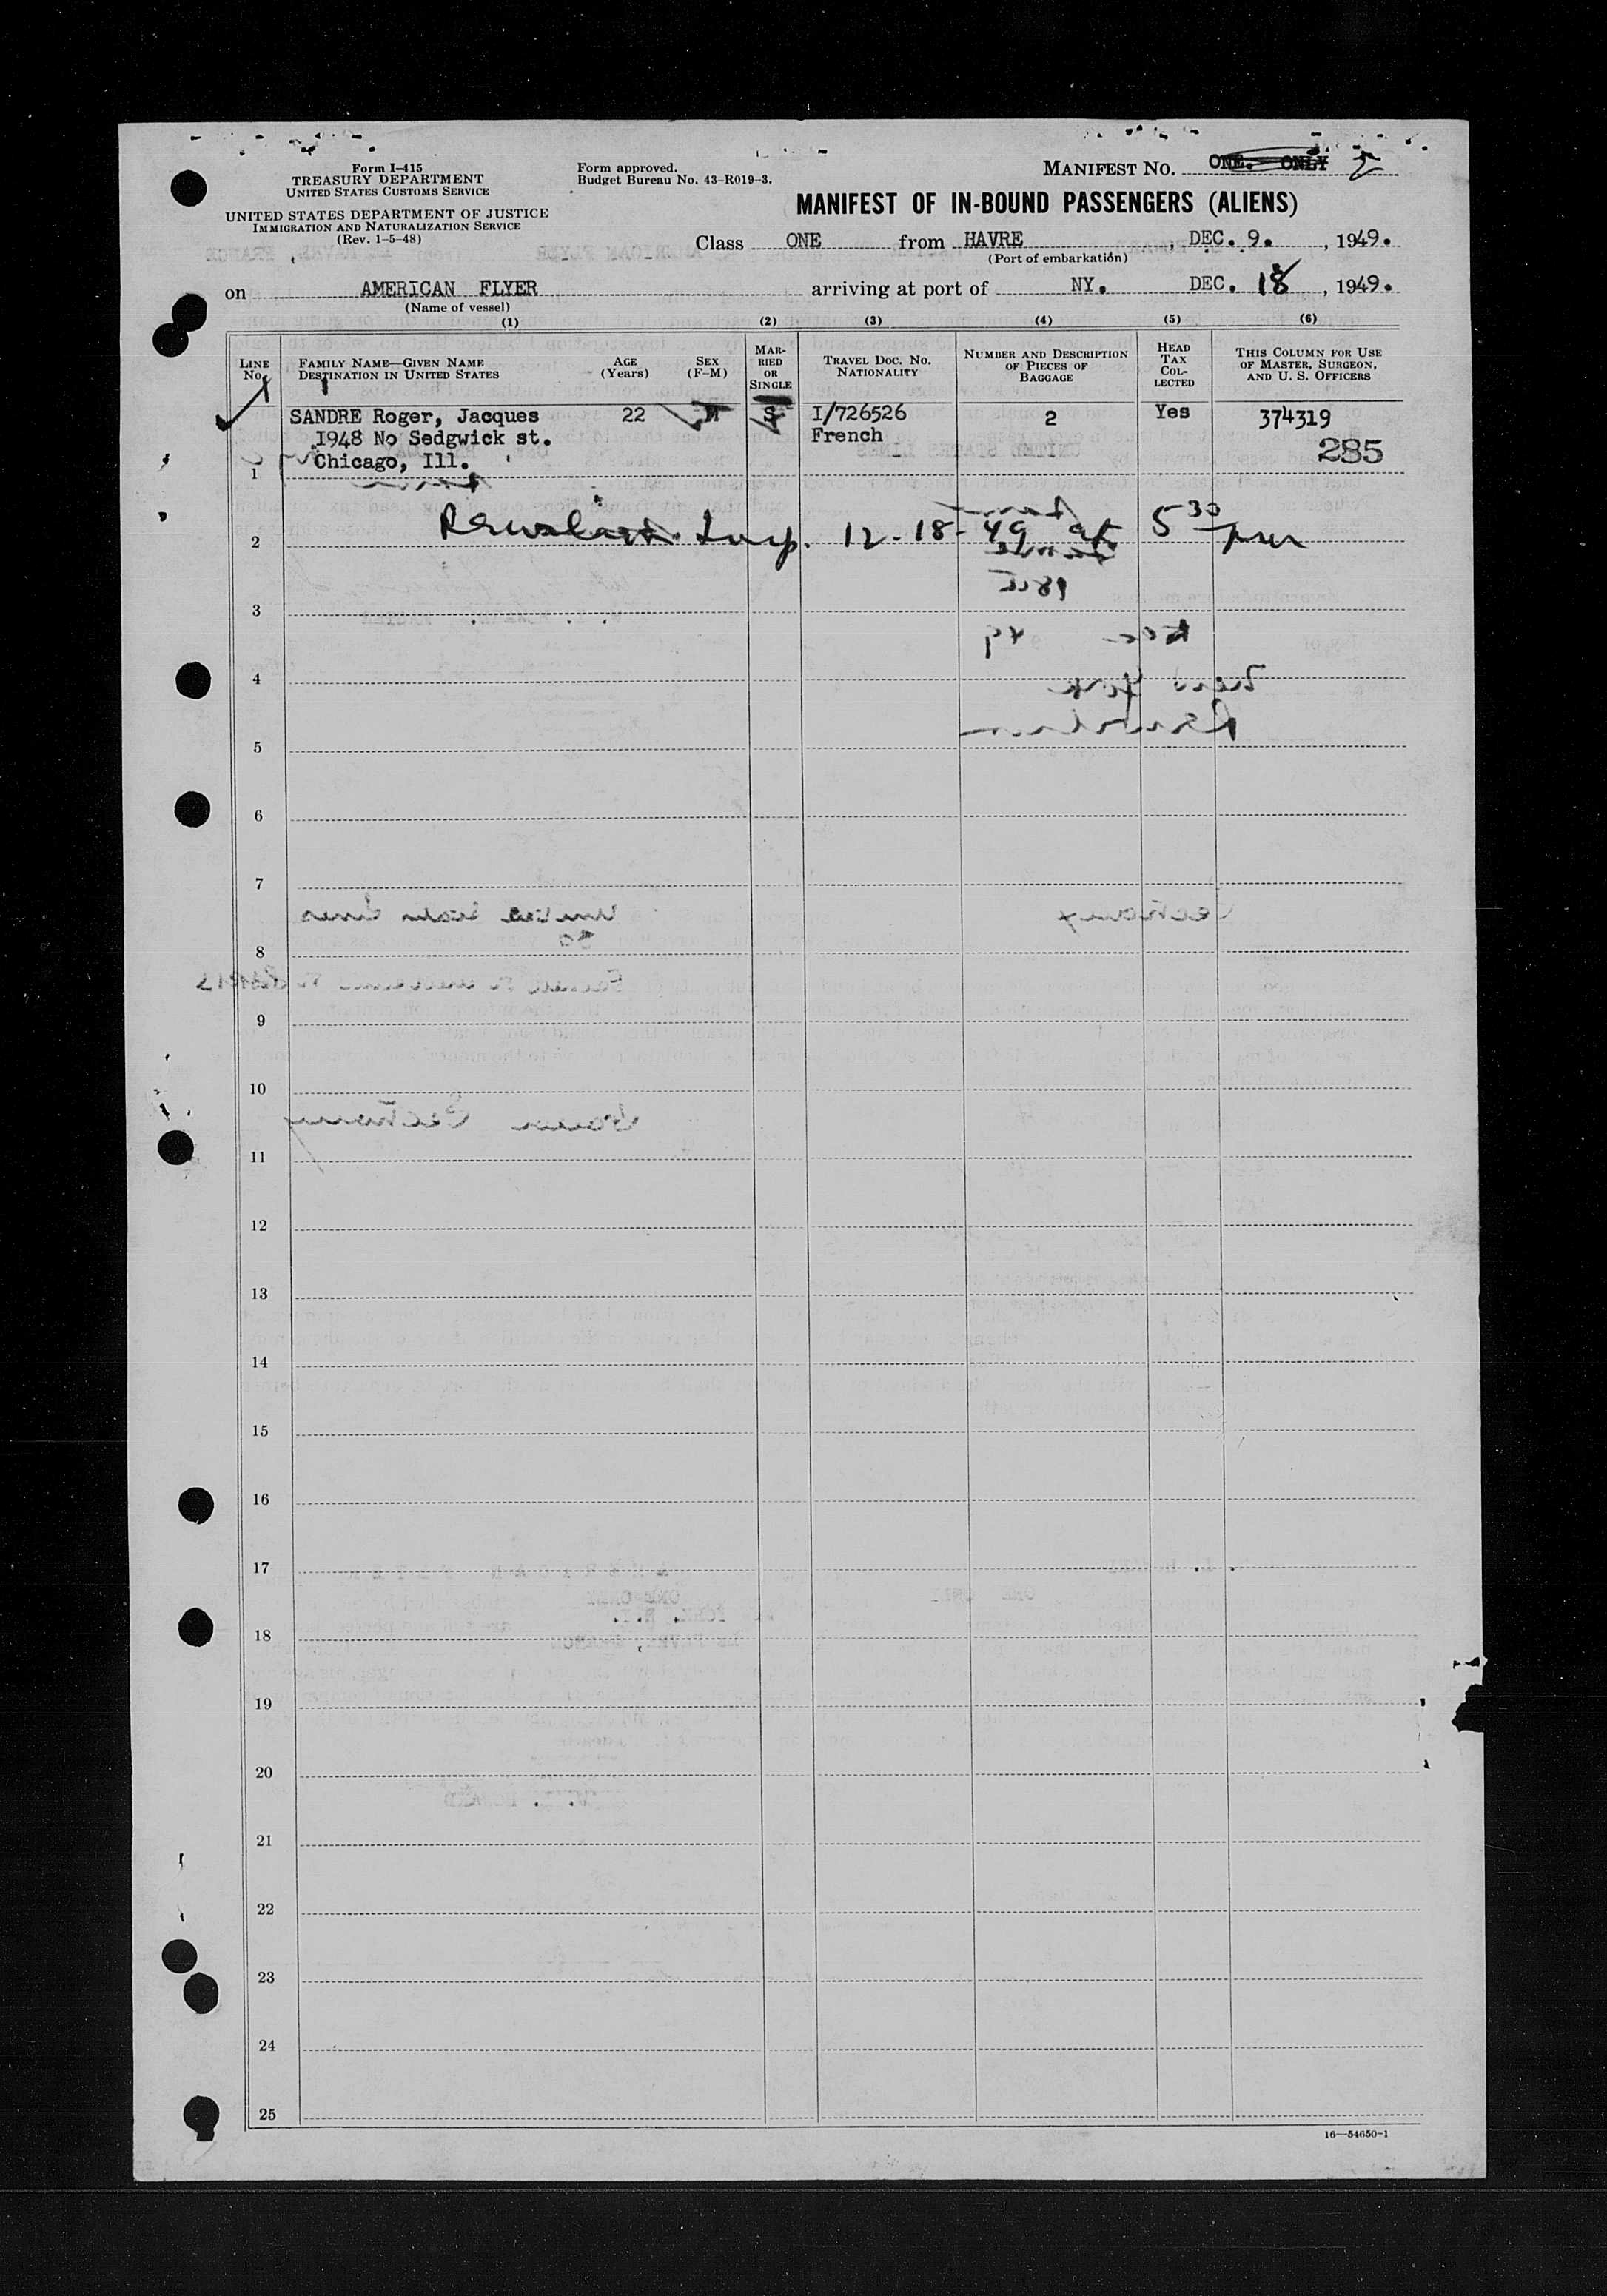 Form I-415
TREASURY DEPARTMENT
UNITED STATES CUSTOMS SERVICE
UNITED STATES DEPARTMENT OF JUSTICE
IMMIGRATION AND NATURALIZATION SERVICE
(Rev. 1-5-48)
Form approved.
Budget Bureau No. 43-R019-3.
MANIFEST NO. ONE. ONLY 2
MANIFEST OF IN-BOUND PASSENGERS (ALIENS)
Class ONE from HAVRE, DEC. 9., 1949.
(Port of embarkation)
on AMERICAN FLYER arriving at port of NY. DEC. 18, 1949.
(Name of vessel)
(1) (2) (3) (4) (5) (6)
LINE No. FAMILY NAME—GIVEN NAME DESTINATION IN UNITED STATES AGE (Years) SEX (F-M) MARRIED OR SINGLE TRAVEL DOC. NO. NATIONALITY NUMBER AND DESCRIPTION OF PIECES OF BAGGAGE HEAD TAX COLLECTED THIS COLUMN FOR USE OF MASTER, SURGEON, AND U. S. OFFICERS
SANDRE Roger, Jacques 22 M S I/726526 2 Yes 374319
1948 No Sedgwick st. French
Chicago, Ill. 285
1
2 Insp. 12-18-49 at 5 30 pm
3
4
5
6
7
8
9
10
11
12
13
14
15
16
17
18
19
20
21
22
23
24
25
16—54650-1